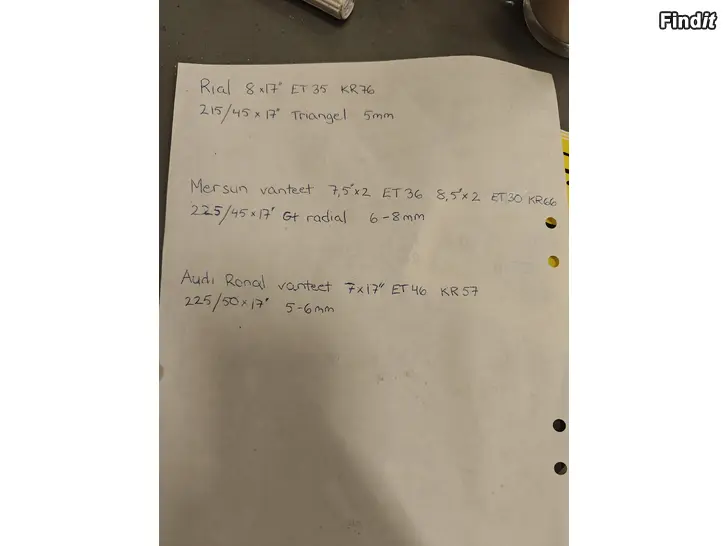 Findit
Rial 8x17" ET35 KR76
215/45x17" Triangel 5mm
Mersun vanteet 7,5"x2 ET36 8,5"x2 ET30 KR66
225/45x17" Gt radial 6-8mm
Audi Ronal vanteet 7x17" ET46 KR57
225/50x17" 5-6mm